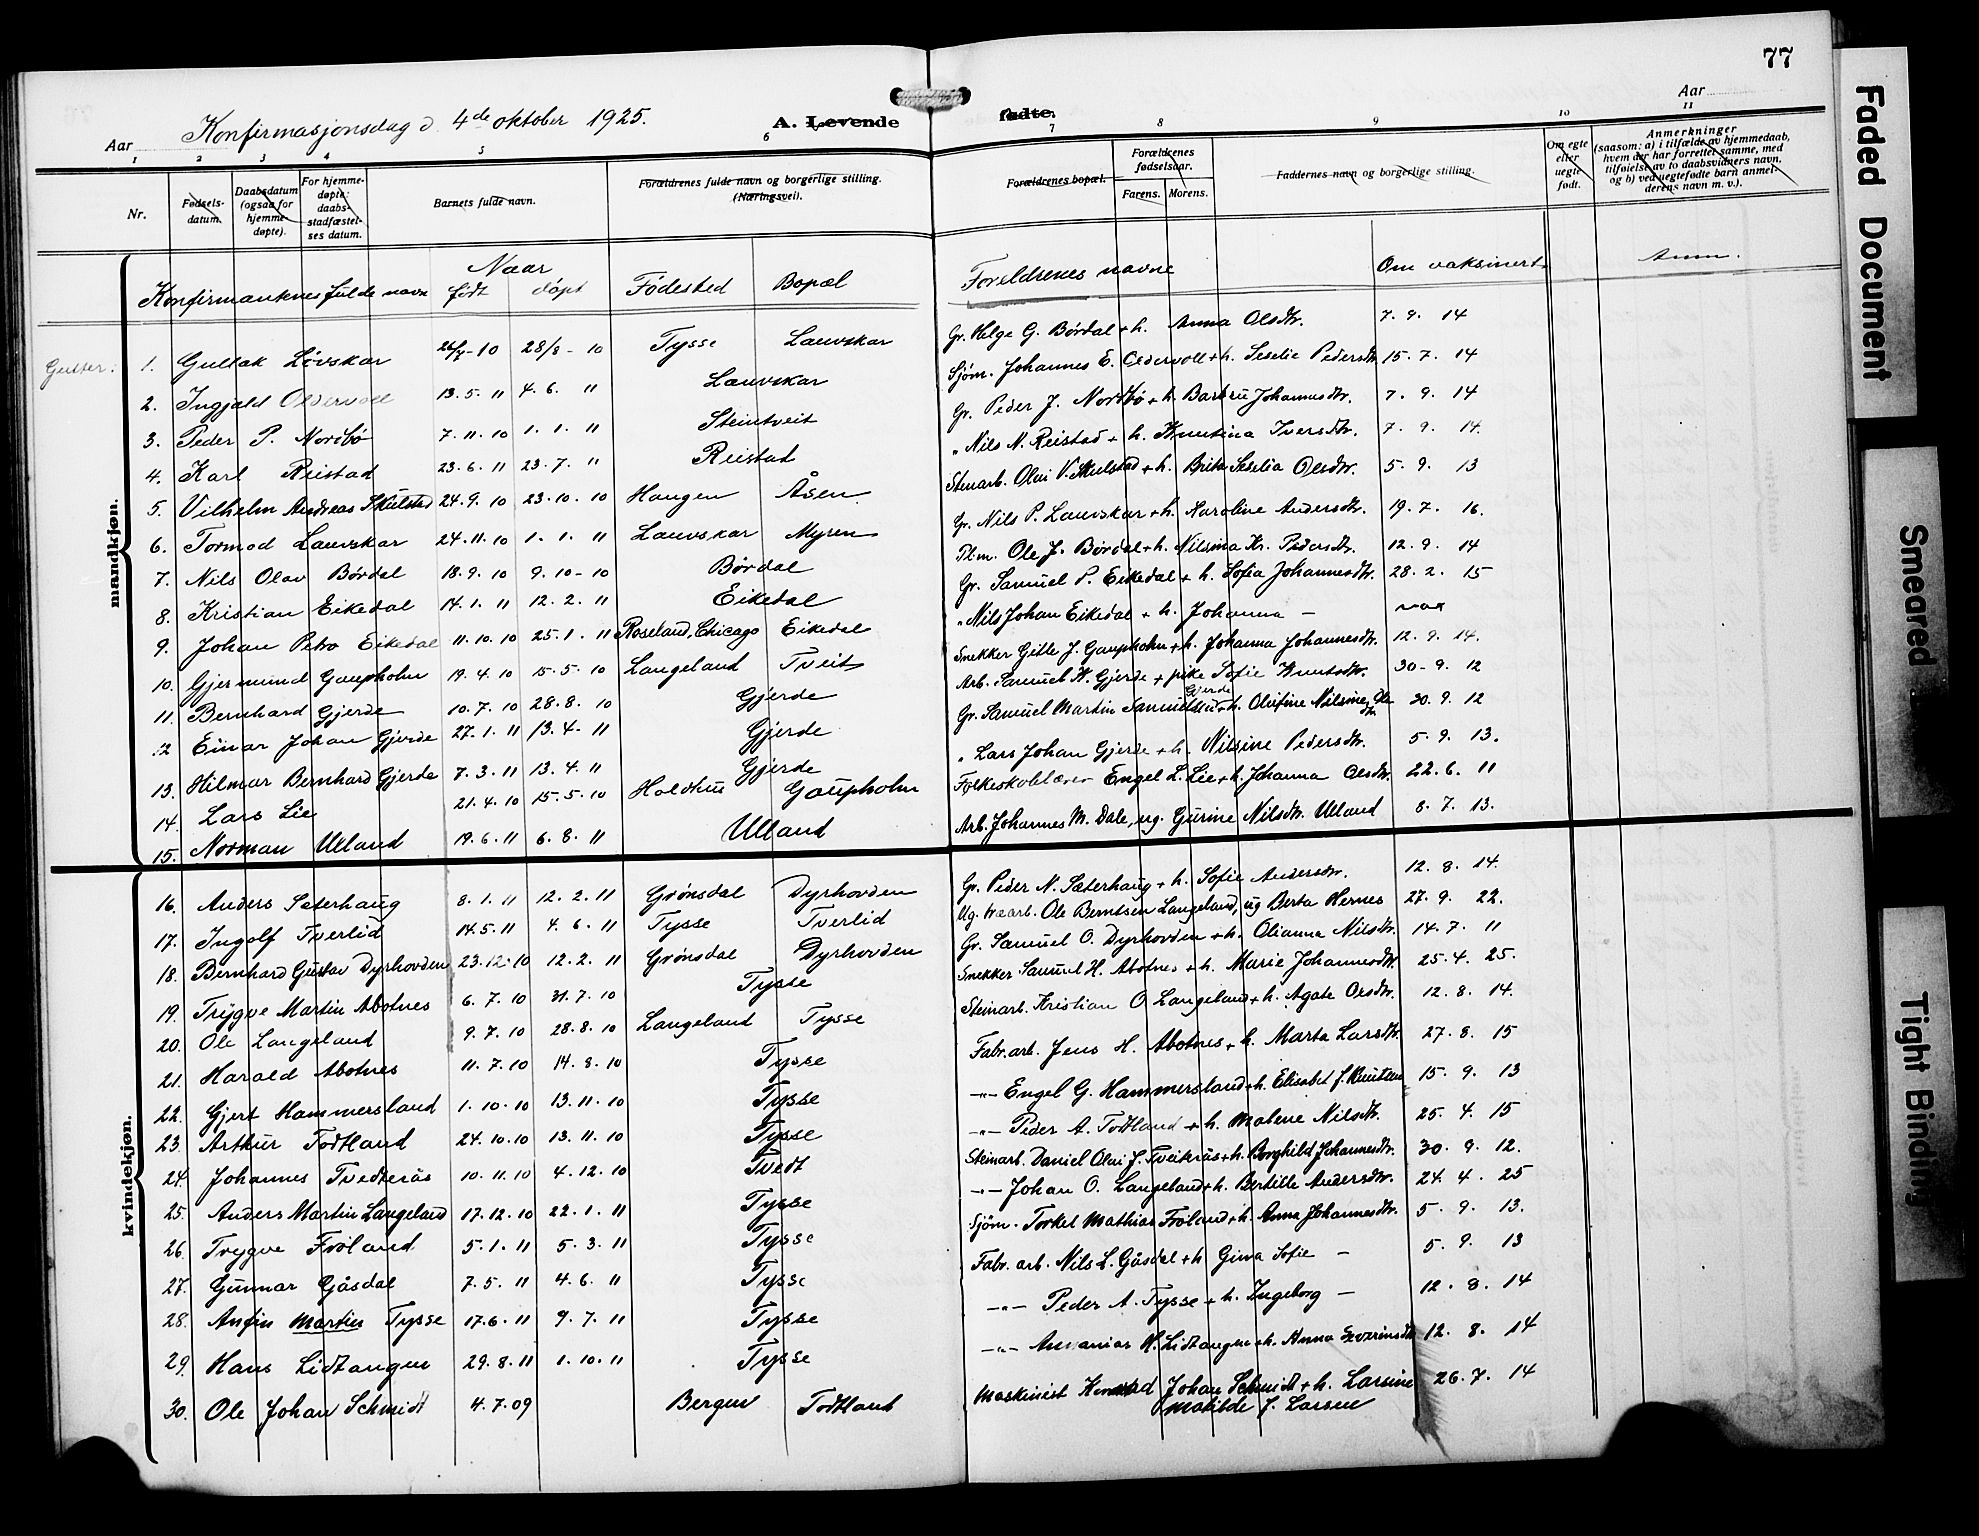 77
Konfirmasjonsdag d. 4de oktober 1925.
A. Levende fødte.
Aar
Aar
1 2 3 4 5 6 7 8 9 10 11
Nr.
Fødsels-datum.
Daabsdatum (ogsaa for hjemme-døpte).
For hjemme-døpte: daabs-stadfæstel-ses datum.
Barnets fulde navn.
Forældrenes fulde navn og borgerlige stilling. (Næringsvei).
Forældrenes bopæl.
Forældrenes fødselsaar.
Farens. Morens.
Faddernes navn og borgerlige stilling.
Om egte eller uegte født.
Anmerkninger (saasom: a) i tilfælde av hjemmedaab, hvem der har forrettet samme, med tilføielse av to daabsvidners navn, og b) ved uegtefødte barn anmel-derens navn m. v.).
Konfirmantknes fulde navn Naar født døpt Fødested Bopæl Foreldrenes navne Om vaksinert Anm.
mandkjøn.
Gutter:
1. Gullak Løvskar 26/7-10 28/8-10 Tysse Lauvskar Gr. Helge G. Børdal + h. Anna Olsdtr. 7. 9. 14
2. Ingjald Oldervoll 13.5.11 4.6. 11 Lauvskar Sjøm. Johannes E. Oldervoll + h. Seselie Pedersdtr. 15.7.14
3. Peder P. Nordbø 7.11.10 1.1.11 Steintveit Gr. Peder J. Nordbø + h. Barbru Johannesdtr. 7. 9. 14
4. Karl Reistad 23.6.11 23.7.11 Reistad " Nils N. Reistad + h. Knutina Iversdtr. 7. 9. 14.
5. Vilhelm Andreas Skulstad 24.9.10 23.10.10 Haugen Åsen Stenarb. Olai V. Skulstad + h. Brita Seselia Olsdtr. 5. 9. 13
6. Tormod Lauvskar 24.11.10 1.1.11 Lauvskar Myren Gr. Nils P. Lauvskar + h. Karoline Andersdtr. 19.7.16.
7. Nils Olav Børdal 18.9.10 9.10-10 Børdal Plm. Ole J. Børdal + h. Nilsina Kr. Pedersdtr. 12.9.14
8. Kristian Eikedal 14.1.11 12.2.11 Eikedal Gr. Samuel P. Eikedal + h. Sofia Johannesdtr. 28.2.15
9. Johan Petro Eikedal 11.10.10 25.1.11 Roseland, Chicago Eikedal " Nils Johan Eikedal + h. Johanna - vax
10. Gjermund Gaupholm 19.4.10 15.5.10 Langeland Tveit Snekker Gitle J. Gaupholm + h. Johanna Johannesdtr. 12.9.14.
11. Bernhard Gjerde 10.7.10 28.8.10 Gjerde Arb. Samuel K. Gjerde + pike Sofie Knutsdtr. 30-9.12
12 Einar Johan Gjerde 27.1.11 13.4-11 Gjerde Gr. Samuel Martin Samuelsen Gjerde + h. Olufine Nilsine Olsdtr 30.9.12
13. Hilmar Bernhard Gjerde 7.3.11 13.4.11 Gjerde " Lars Johan Gjerde + h. Nilsine Pedersdtr. 5.9.13.
14. Lars Lie 21.4.10 15.5.10 Holdhus Gaupholm Folkeskolelærer Engel L. Lie + h. Johanna Olsdtr. 22.6.11
15. Norman Ulland 19.6.11 6.8.11 Ulland Arb. Johannes M. Dale, ug. Gurine Nilsdtr. Ulland 8.7.13.
kvindekjøn.
16. Anders Sæterhaug 8.1.11 12.2.11 Grønsdal Dyrhovden Gr. Peder N. Sæterhaug + h. Sofie Andersdtr. 12.8.14.
17. Ingolf Tverlid 14.5.11 4.6.11 Tysse Tverlid Ug. træarb. Ole Berntsen Langeland, ug Berta Hernes 27.9.22.
18. Bernhard Gustav Dyrhovden 23.12.10 12.2.11 Grønsdal Dyrhovden Gr. Samuel O. Dyrhovden + h. Olianna Nilsdtr. 14.7.11
19. Trygve Martin Abotnes 6.7.10 31.7.10 Tysse Snekker Samuel H. Abotnes + h. Marie Johannesdtr. 25.4.25.
20. Ole Langeland 9.7.10 28.8.10 Langeland Tysse Steinarb. Kristian O. Langeland + h. Agate Olsdtr. 12.8.14.
21. Harald Abotnes 11.7.10 14.8.10 Tysse Fabr. arb. Jens H. Abotnes + h. Marta Larsdtr. 27.8.15
22. Gjert Hammersland 1.10.10 13.11.10 Tysse -"- Engel G. Hammersland + h. Elisabet J. Knutsen 15.9.13
23. Arthur Todtland 24.10.10 13.11.10 Tysse -"- Peder A. Todtland + h. Malene Nilsdtr. 25.4.15
24. Johannes Tvedterås 10.11.10 4.12.10 Tvedt Steinarb. Daniel Olai J. Tveiterås + h. Borghild Johannesdtr. 30.9.12.
25. Anders Martin Langeland 17.12.10 22.1.11 Tysse -"- Johan O. Langeland + h. Bertille Andersdtr. 24.4.25
26. Trygve Frøland 5.1.11 5.3.11 Tysse Sjøm. Torkel Mathias Frøland + h. Anna Johannesdtr. 5.9.13.
27. Gunnar Gåsdal 7.5.11 4.6.11 Tysse Fabr. arb. Nils L. Gåsdal + h Gina Sofie - 5.9.13
28. Anfin Martin Tysse 17.6.11 9.7.11 Tysse -"- Peder A. Tysse + h. Ingeborg - 12.8.14
29. Hans Lidtangen 29.8.11 1.10.11 Tysse -"- Annanias H. Lidtangen + h. Anna Severinsdtr 12.8.14
30. Ole Johan Schmidt 4.7.09 Bergen Todtland Maskinist Johan Schmidt + h. Larsine Matilde J. Larsen 26.7.14
Faded Document
Smeared
Tight Binding